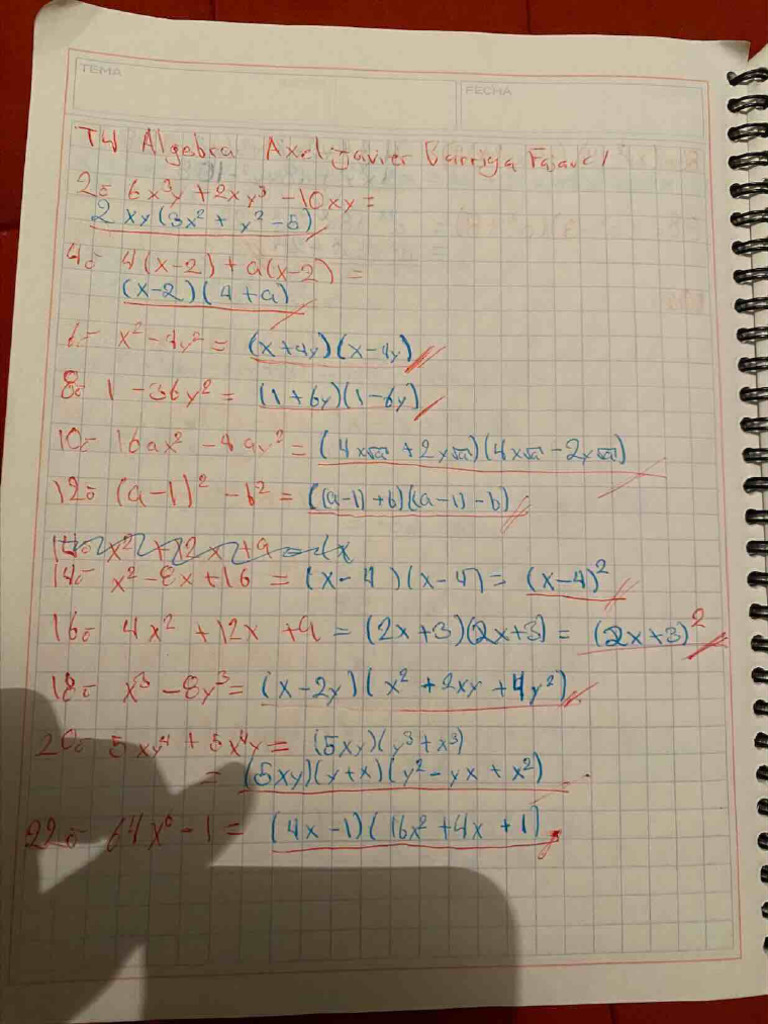 TEMA
FECHA
T4 Algebra Axel Javier Barriga
2.- 6x³y + 2xy³ - 10xy =
2xy(3x² + y² - 5)
4.- 4(x-2) + a(x-2) =
(x-2)(4+a)
6.- x² - 4y² = (x+4y)(x-4y)
8.- 1 - 36y² = (1+6y)(1-6y)
10.- 16ax² - 4ay² = (4x√a + 2y√a)(4x√a - 2y√a)
12.- (a-1)² - b² = ((a-1)+b)((a-1)-b)
14.- x² - 8x + 16 = (x-4)(x-4) = (x-4)²
16.- 4x² + 12x + 9 = (2x+3)(2x+3) = (2x+3)²
18.- x³ - 8y³ = (x-2y)(x² + 2xy + 4y²)
20.- 5xy⁴ + 5x⁴y = (5xy)(y³+x³)
= (5xy)(y+x)(y² - yx + x²)
22.- 64x⁶ - 1 = (4x-1)(16x² + 4x + 1)